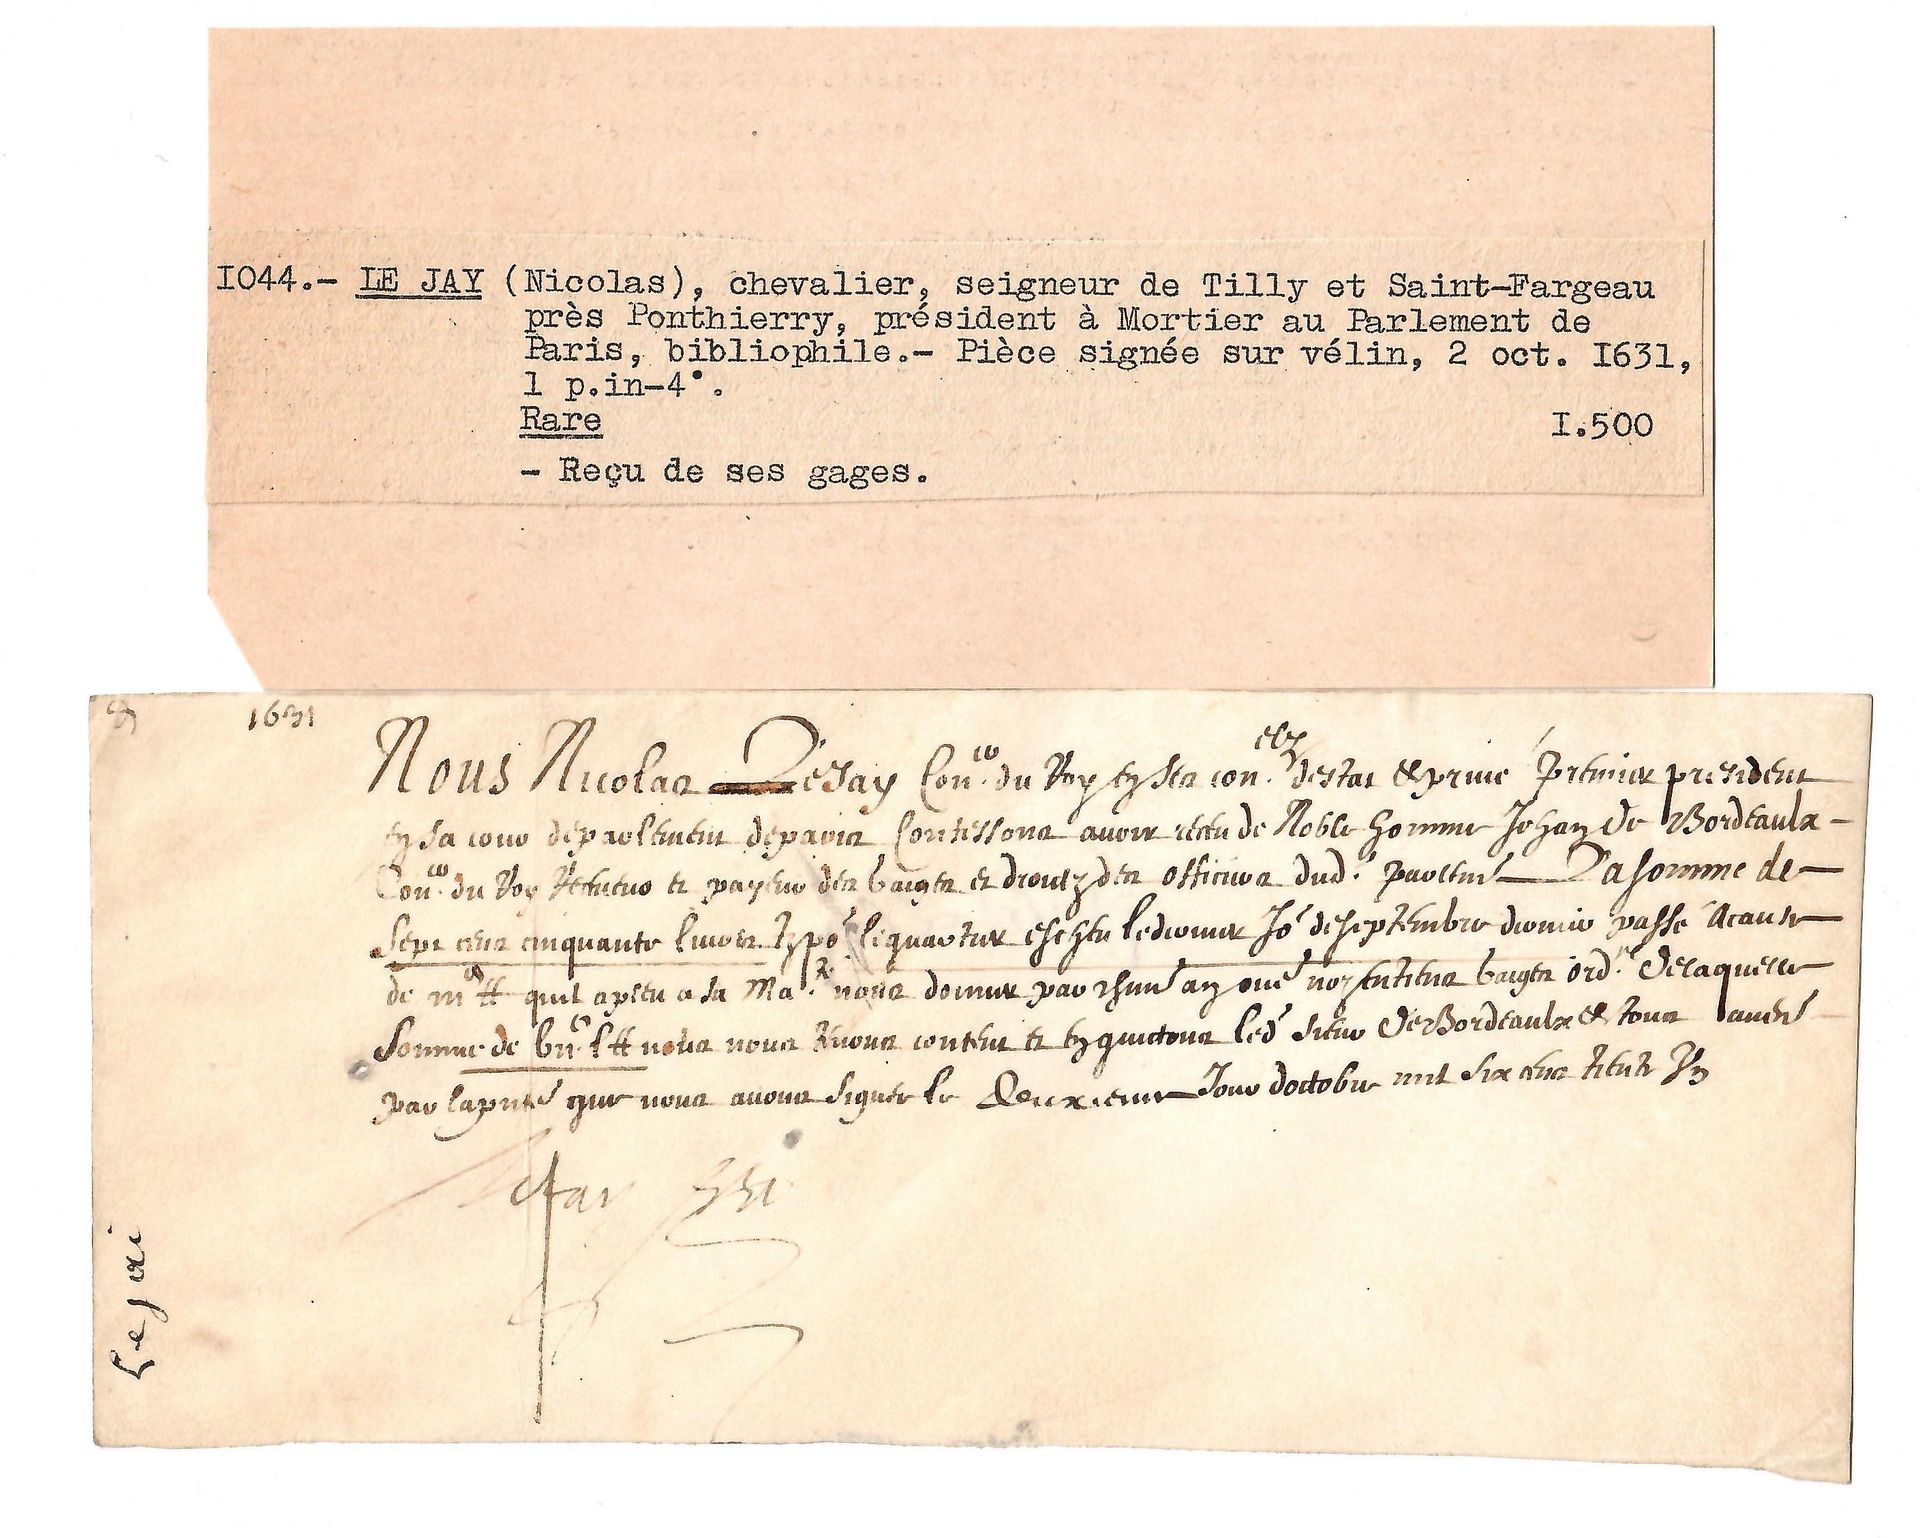 1044.- LE JAY (Nicolas), chevalier, seigneur de Tilly et Saint-Fargeau
près Ponthierry, président à Mortier au Parlement de
Paris, bibliophile.- Pièce signée sur vélin, 2 oct. 1631,
1 p.in-4°.
Rare 1.500
- Reçu de ses gages.
1631
Nous Nicolas LeJay Con.er du Roy en ses con.elz destat & privé Premier president
en sa cour de parlement de paris Confessons avoir receu de Noble homme Jehan De Bordeaulx
Con.er du Roy Receveur et payeur des gaiges et droictz des officiers dud. parlemt La somme de
Sept cens cinquante livres le quartier escheu le dernier Jor de septembre dernier passé A cause
de quil a pleu a sa Ma.té nous donner par chun an oultre noz antiens gaiges ord.res De laquelle
Somme de nous nous tenons content et en quictons led sieur De Bordeaulx & tous aultres
par la pnte que nous avons signée le Deuxieme Jour doctobre mil six cens trente Un
Le jai